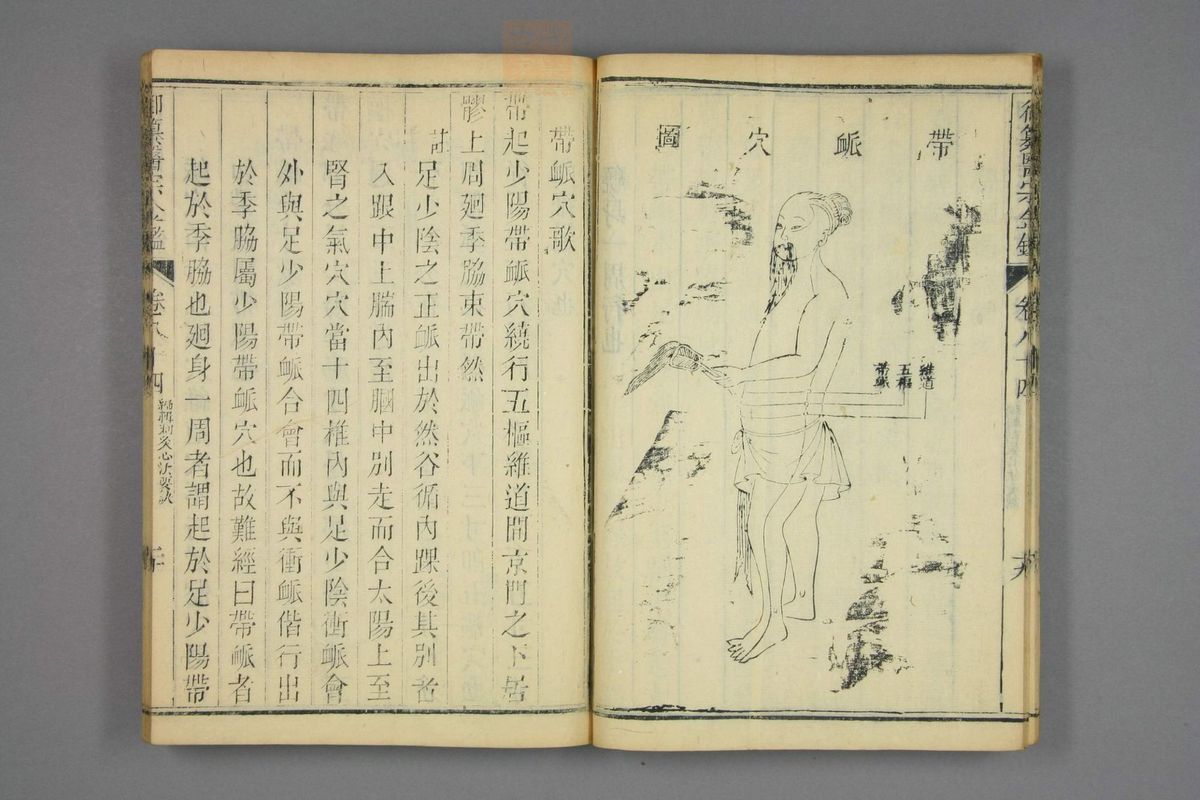 御纂醫宗金鑑 卷八十四
帶䘑穴圖
維道
五樞
帶䘑
帶䘑穴歌
帶起少陽帶䘑穴繞行五樞維道間京門之下居
髎上周廻季脇束帶然
註
足少陰之正䘑出於然谷循內踝後其別者
入跟中上腨內至膕中別走而合太陽上至
腎之氣穴穴當十四椎內與足少陰衝䘑會
外與足少陽帶䘑合會而不與衝䘑偕行出
於季脇屬少陽帶䘑穴也故難經曰帶䘑者
起於季脇也廻身一周者謂起於足少陽帶
御纂醫宗金鑑 卷八十四 編輯刺灸心法要訣